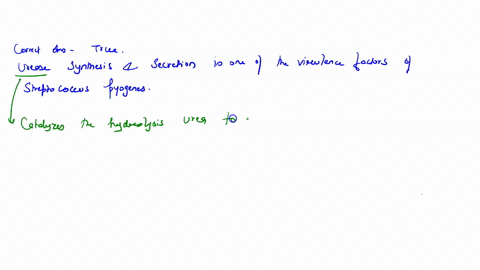 Correct Ans - True.
Urease Synthesis & Secretion is one of the virulence factors of
Streptococcus pyogenes.
Catalyzes the hydrolysis urea to